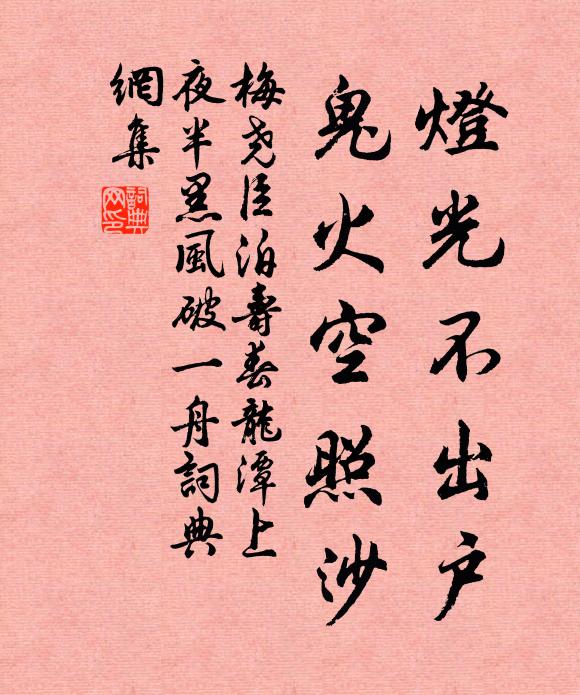 燈光不出戶
鬼火空照沙
梅堯臣泊壽春龍潭上
夜半黑風破一舟詞典
網集
詞典
网印